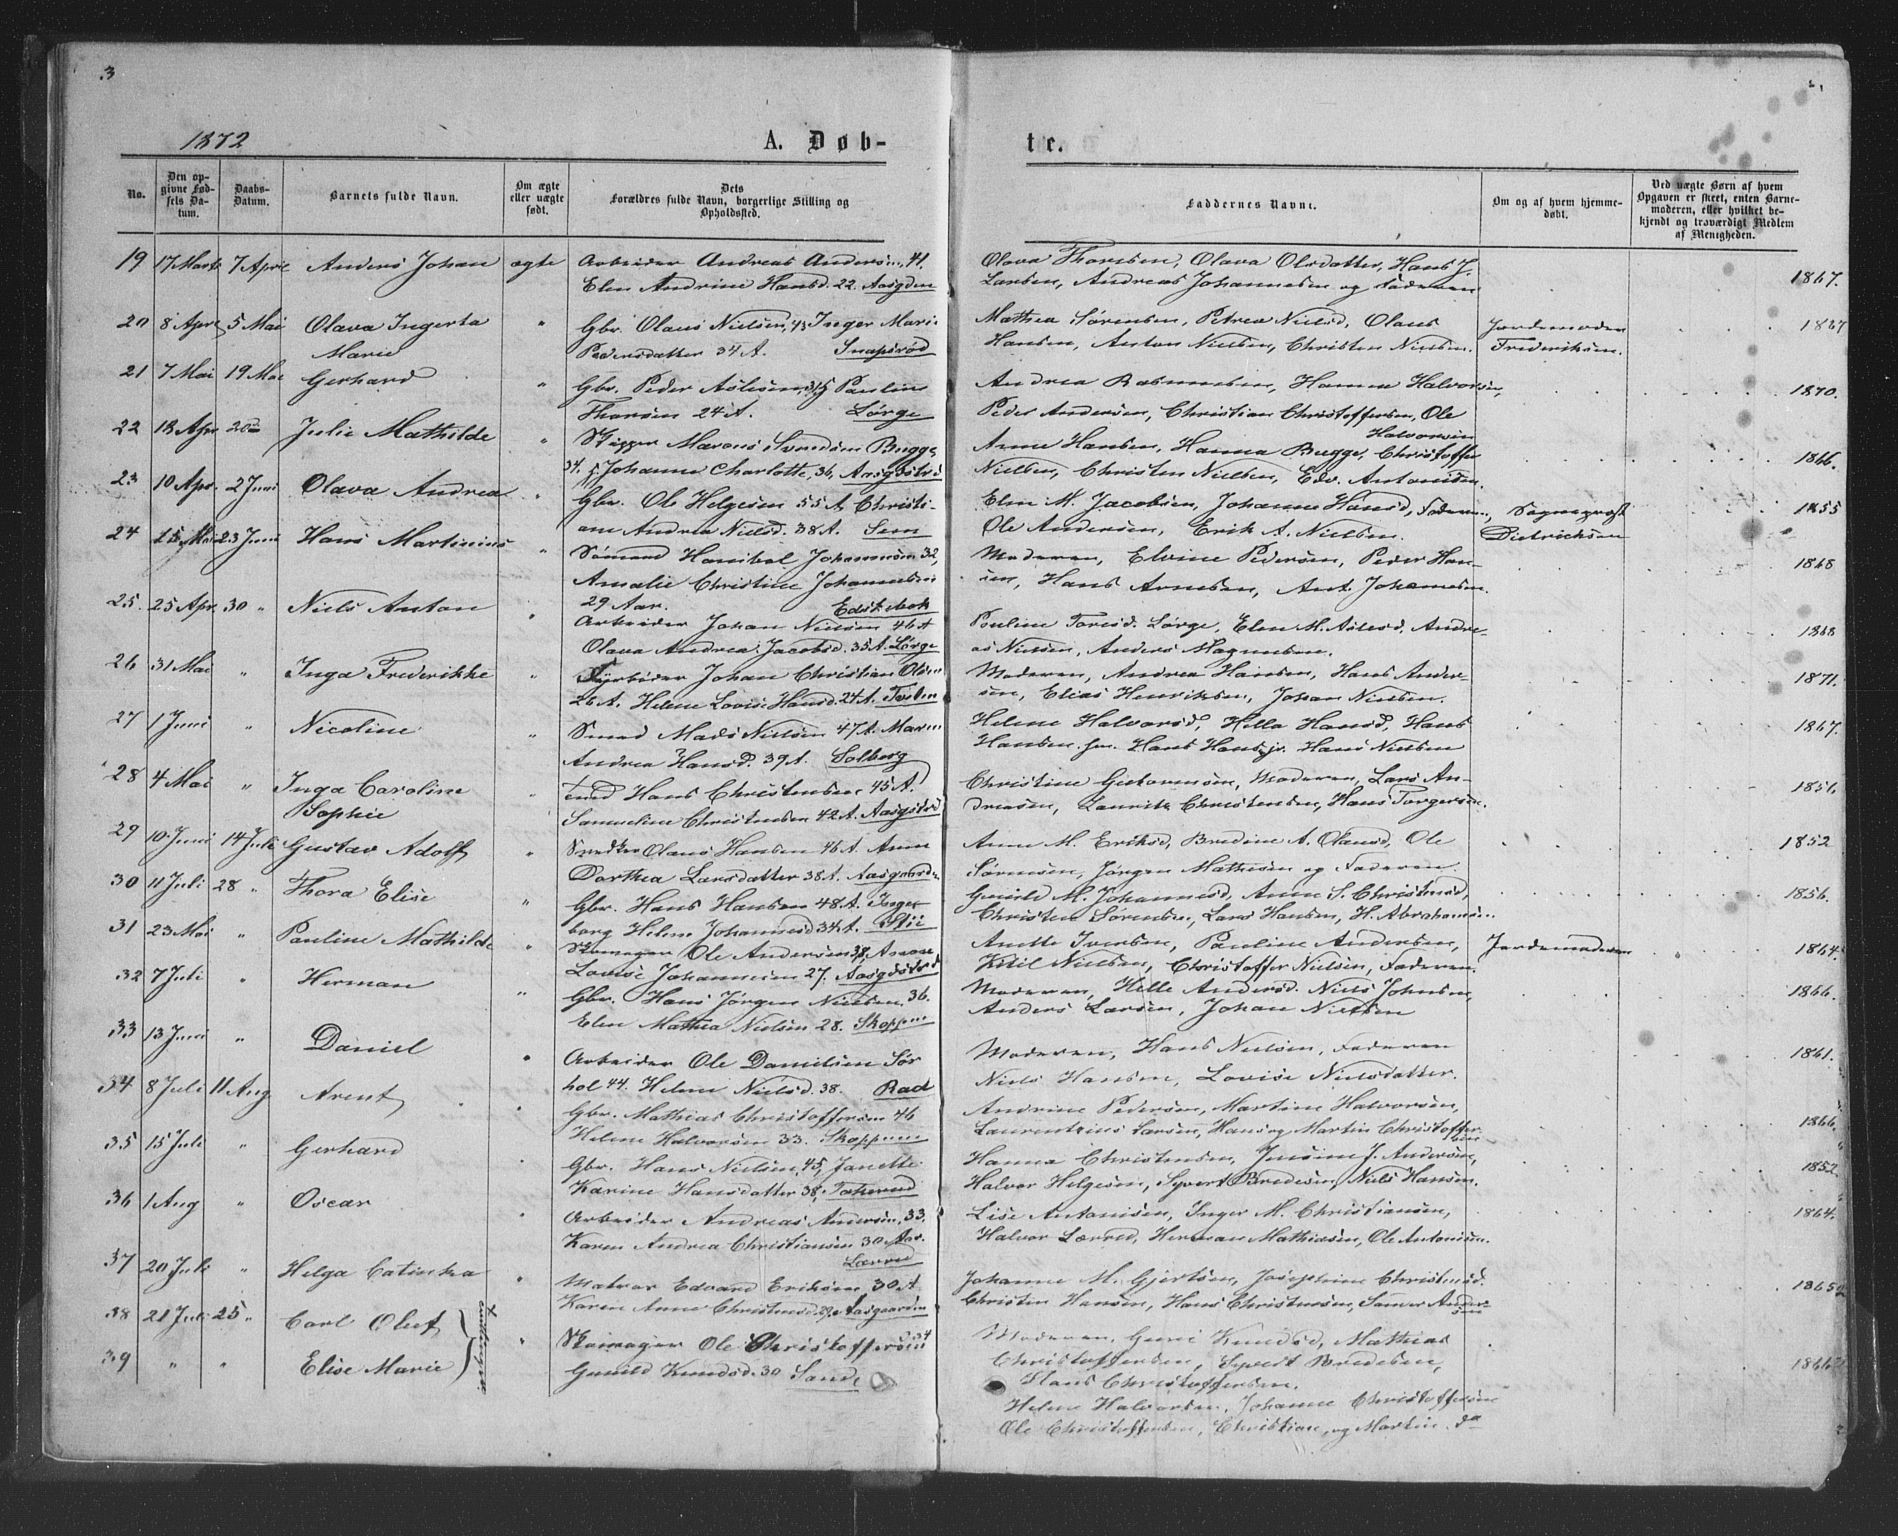 3
1872
A. Døb-
te.
No.
Den op-
givne Fød-
sels Da-
tum.
Daabs-
Datum.
Barnets fulde Navn.
Om ægte
eller uægte
født.
Dets
Forældres fulde Navn, borgerlige Stilling og
Opholdssted.
Faddernes Navne.
Om og af hvem hjemme-
døbt.
Ved uægte Børn af hvem
Opgaven er skeet, enten Barne-
moderen, eller hvilket be-
kjendt og troværdigt Medlem
af Menigheden.
19 17 Marts 7 April Anders Johan ægte Arbeider Andreas Andersen, 41.
Elen Andrine Hansd. 22. Aasgden
Olava Thoresen, Olava Olsdatter, Hans J.
Larsen, Andreas Johannesen og Faderen 1867.
20 8 Apr 5 Mai Olava Ingerta
Marie
" Gbr. Olaus Nielsen, 43, Inger Marie
Pedersdatter 34 A. Snapsrød
Mathea Sørensen, Petrea Nielsd, Olaus
Hansen, Anton Nielsen, Christen Nielsen.
Jordemoder
Frederiksen.
21 7 Mai 19 Mai Gerhard " Gbr. Peder Aslesen, Pauline
Thorsen 24 A. Lørge
Andrea Rasmussen, Hanna Halvorsen,
Peder Andersen, Christian Christoffersen, Ole
Halvorsen
1870.
22 18 Apr 20 Julie Mathilde " Skipper Marcus Svendsen Bugge
34. Johanne Charlotte, 36, Aasgdstrd
Anne Hansen, Hanna Bugge, Christoffer
Nielsen, Christen Nielsen, Edv. Antonisen. 1866.
23 10 Apr. 2 Juni Olava Andrea " Gbr. Ole Helgesen 55 A, Christi-
ane Andrea Nielsd. 38 A. Sem
Elen M. Jacobsen, Johanne Hansd, Faderen,
Ole Andersen, Erik A. Nielsen.
Sogneprest
Dietrichson
1855
24 15 Mai 23 Juni Hans Martinius " Sømand Hanibal Johannesen 32,
Amalie Christine Johannesen
29 Aar.
Moderen, Elvine Pedersen, Peder Han-
sen, Hans Arnesen, Ant. Johannesen. 1868
25. 25 Apr. 30 " Niels Anton " Arbeider Johan Nielsen 46 A
Olava Andrea Jacobsd. 35 A. Lørge
Pauline Toresd. Lørge, Elen M. Aslesd, Andre-
as Nielsen, Anders Magnussen. 1868
26 31 Mai " Inga Frederikke " Johan Christian Olsen
26 A. Helene Lovise Hansd. 24 A.
Moderen, Andrea Hansen, Hans Ander-
sen, Elias Henriksen, Johan Nielsen. 1871.
27 1 Juni " Nicoline " Smed Mads Nielsen 47 A. Maren
Andrea Hansd. 39 A. Solberg
Helene Halvorsd, Helle Hansd, Hans
Hansen sen. Hans Hans. jr. Hans Nielsen 1867.
28 4 Mai " Inga Caroline
Sophie
" Hans Christensen 45 A.
Samueline Christensen 42 A. Aasgdstrd
Christine Guttormsen, Moderen, Lars An-
dreasen, Lauritz Christensen, Hans Torgersen.
29 10 Juni 14 Juli Gustav Adolf " Snedker Olaus Hansen 46 A. Anne
Dorthea Larsdatter 38 A. Aasgaarden
Anne M. Eriksd, Bredine A. Olausd, Ole
Sørensen, Jørgen Mathisen og Faderen 1852
30 11 Juli 28 " Thora Elise " Gbr. Hans Hansen 48 A. Inge-
borg Helene Johannesd 34 A.
Gunild M. Johannesd, Anne S. Christensd,
Christen Sørensen, Lars Hansen, H. Abrahamsen. 1856.
31 23 Mai " Pauline Mathilde " Skomager Ole Andersen 38,
Lovise Johannesen 27. Aasgdstrd
Anette Iversen, Pauline Andersen,
Ketil Nielsen, Christoffer Nielsen, Faderen.
Jordemoderen "
1864.
32 7 Juli " Herman " Gbr. Hans Jørgen Nielsen, 36.
Elen Mathea Nielsen 28. Skoppum
Moderen, Helle Andersd. Niels Johnsen,
Anders Larsen, Johan Nielsen 1866.
33 13 Juni " Daniel " Arbeider Ole Danielsen Sør
hol 44. Helene Nielsd. 38. Rad
Moderen, Hans Nielsen, Faderen
Niels Hansen, Lovise Nielsdatter. 1861.
34 8 Juli 11 Aug. Arent " Gbr. Mathias Christoffersen 46
Helene Halvorsen 33. Skoppum
Andrine Pedersen, Martine Halvorsen,
Laurentzius Larsen, Hans og Martin Christoffer-
sen
1866.
35 15 Juli " Gerhard " Gbr. Hans Nielsen, 45, Janette
Karine Hansdatter 38,
Hanna Christensen, J. Andersen,
Halvor Helgesen, Syvert Bredesen, Niels Hansen. 1852.
36 1 Aug " Oscar " Arbeider Andreas Andersen, 33.
Karen Andrea Christiansen 30 Aar.
Lise Antonisen, Inger M. Christiansen,
Halvor Lærred, Herman Mathiasen, Ole Antonisen. 1864.
37 20 Juli " Helga Catinka " Matros Edvard Eriksen, 30 A
Karen Anne Christensd. Aasgaarden
Johanne M. Gjertsen, Josephine Christensd.
Christen Hansen, Hans Christensen, Ander-
sen
1865
38 21 Juli 25 " Carl Oluf " Skomager Ole Christoffersen 34
Gunild Knudsd. 30 Sande
Moderen, Gunil Knudsd, Mathias
Christoffersen, Syvert Bredesen,
Hans Christoffersen. 1866
39 " " Elise Marie
Helene Halvorsen, Johanne Christoffersen
Ole Christoffersen, Christian, og Martin do